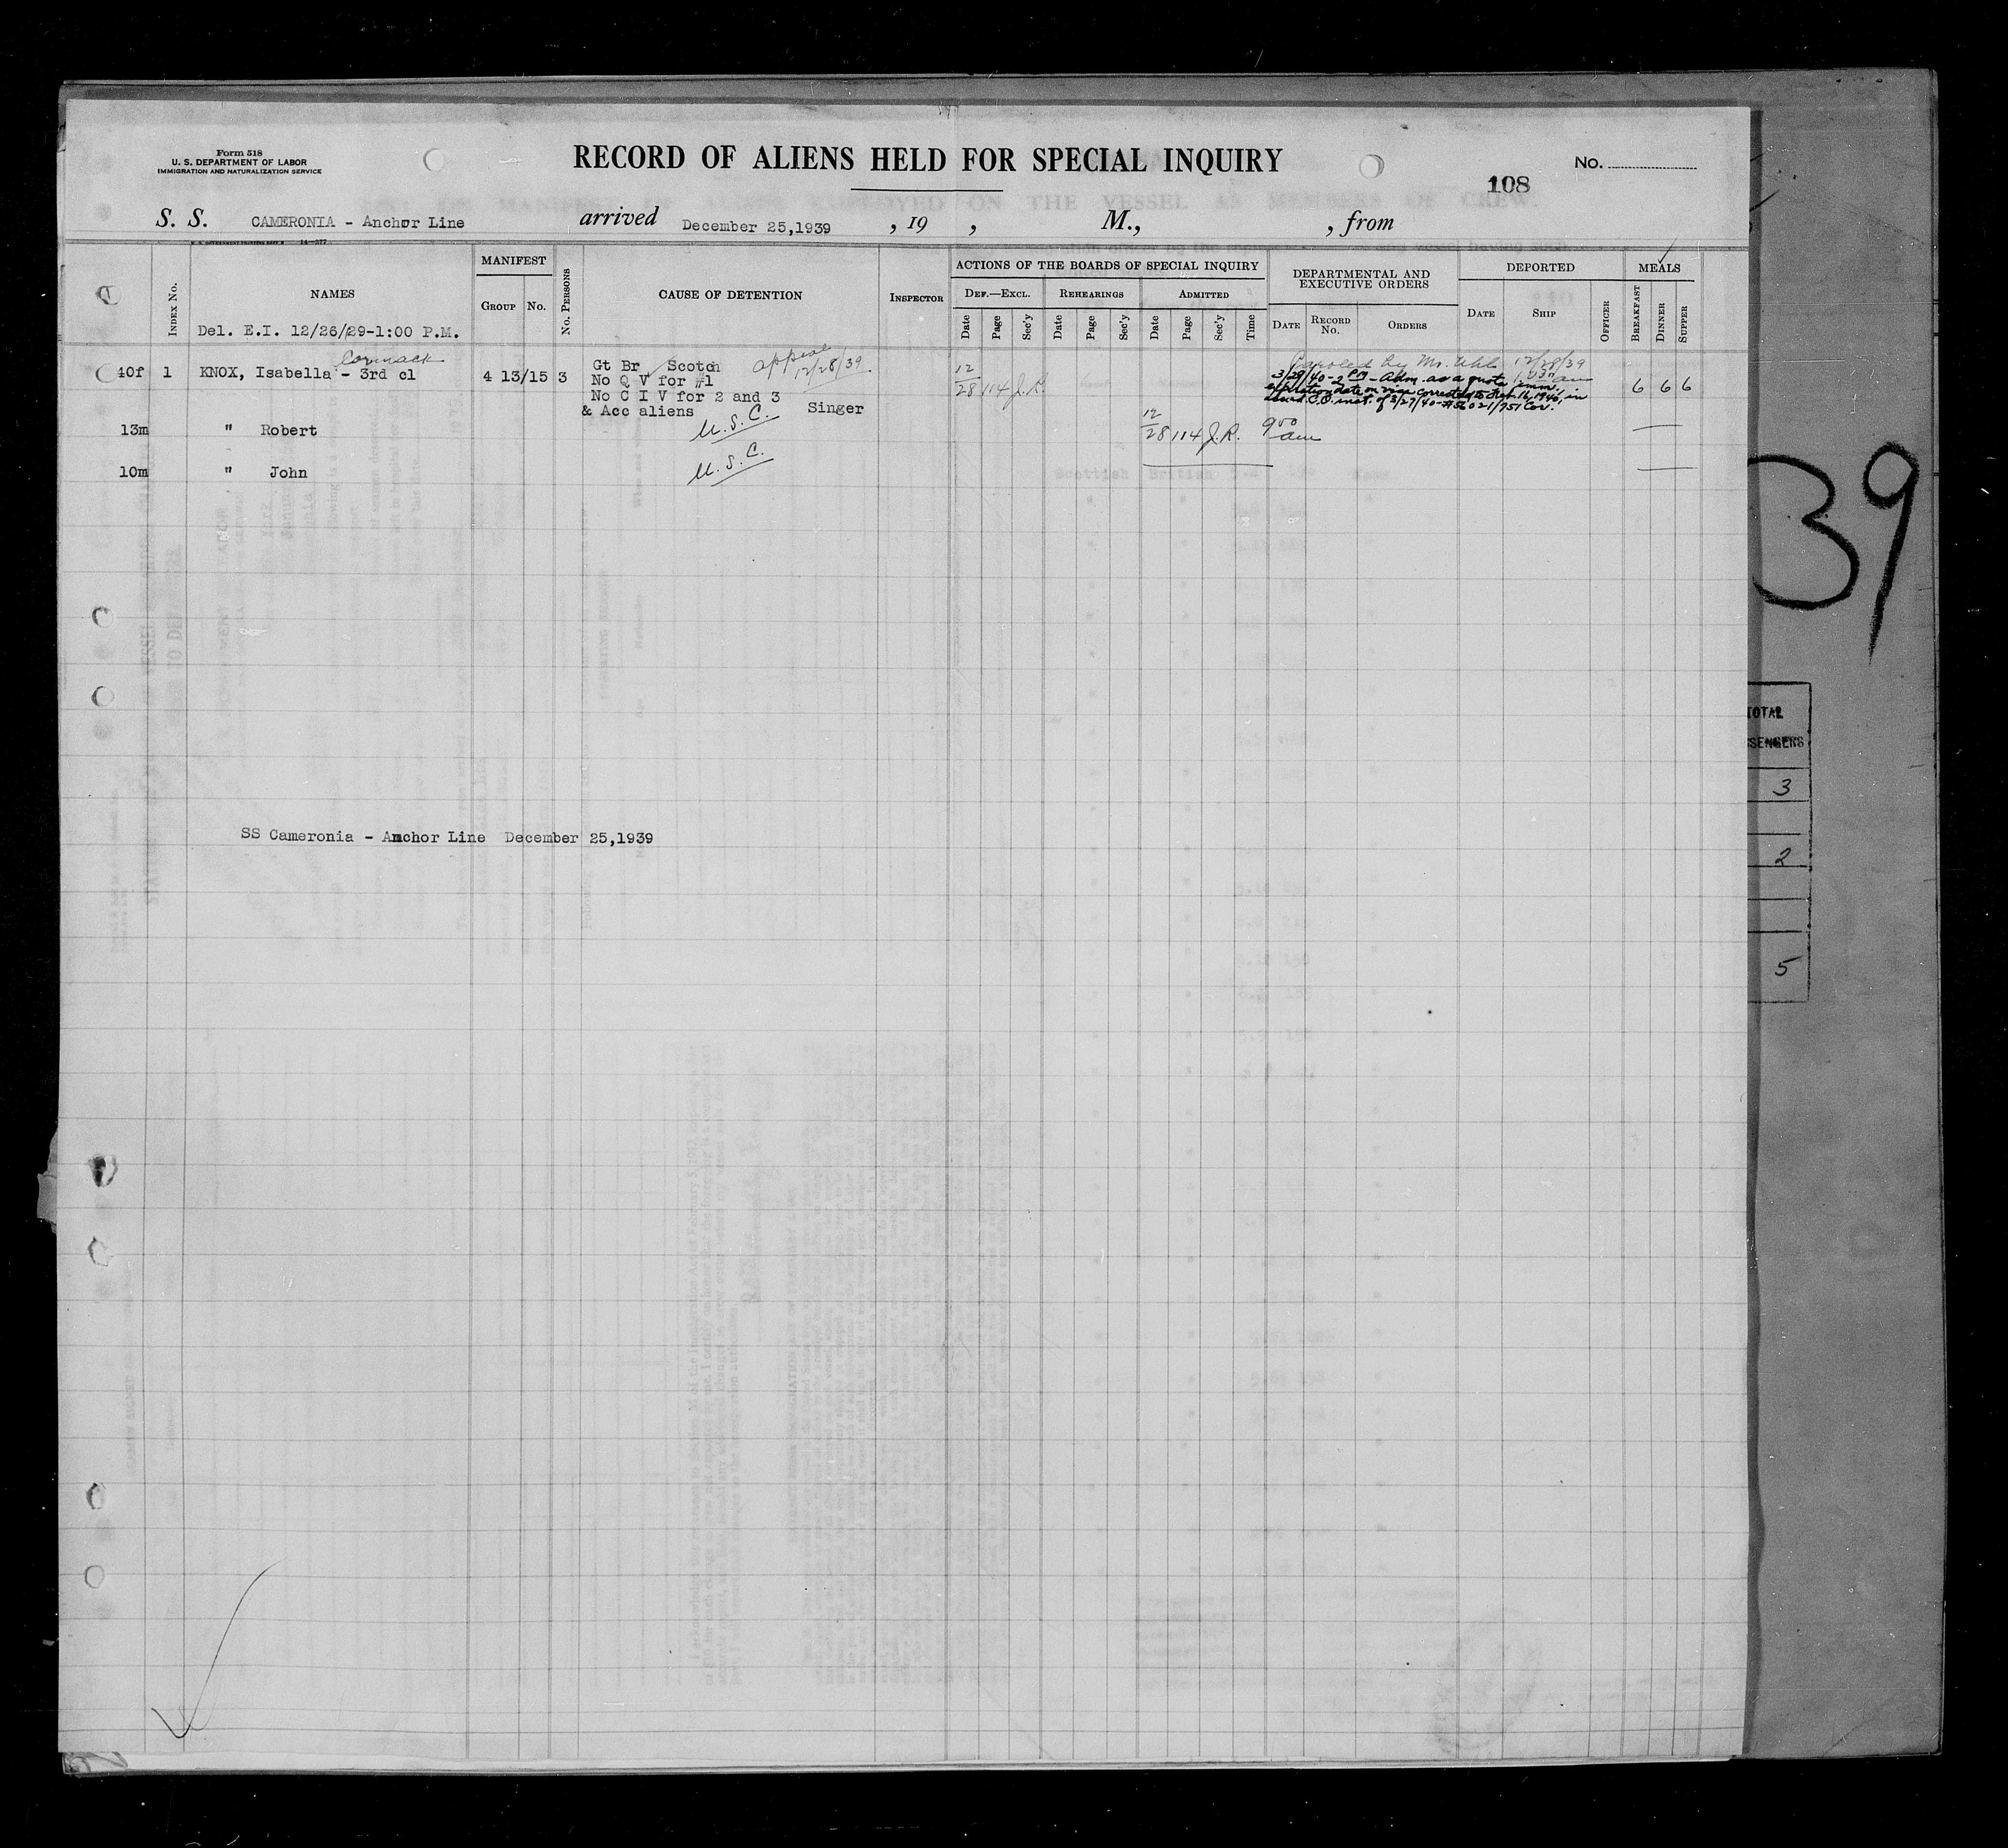 Form 518
U. S. DEPARTMENT OF LABOR
IMMIGRATION AND NATURALIZATION SERVICE
RECORD OF ALIENS HELD FOR SPECIAL INQUIRY
No.
108
S. S. CAMERONIA - Anchor Line arrived December 25,1939 , 19 , M., , from
INDEX No.
NAMES
Del. E.I. 12/26/39-1:00 P.M.
MANIFEST
GROUP No.
No. PERSONS
CAUSE OF DETENTION
INSPECTOR
ACTIONS OF THE BOARDS OF SPECIAL INQUIRY
DEF.—EXCL. REHEARINGS ADMITTED
Date Page Sec'y Date Page Sec'y Date Page Sec'y Time
DEPARTMENTAL AND
EXECUTIVE ORDERS
DATE RECORD No. ORDERS
DEPORTED
DATE SHIP OFFICER
MEALS
BREAKFAST DINNER SUPPER
Cormack
40f 1 KNOX, Isabella - 3rd cl 4 13/15 3
Gt Br Scotch appeal 12/28/39
No Q V for #1
No C I V for 2 and 3
& Acc aliens Singer
12/28 114 J.R.
Paroled by Mr. Uhl 12/28/39
3/29/40-2 PM - Adm. as a quota imm.
expiration date on visa corrected to Feb 16, 1940, in
6 6 6
13m " Robert U.S.C. 12/28 114 J.R. 9 50 am
10m " John U.S.C.
SS Cameronia - Anchor Line December 25,1939
39
TOTAL
3
2
5